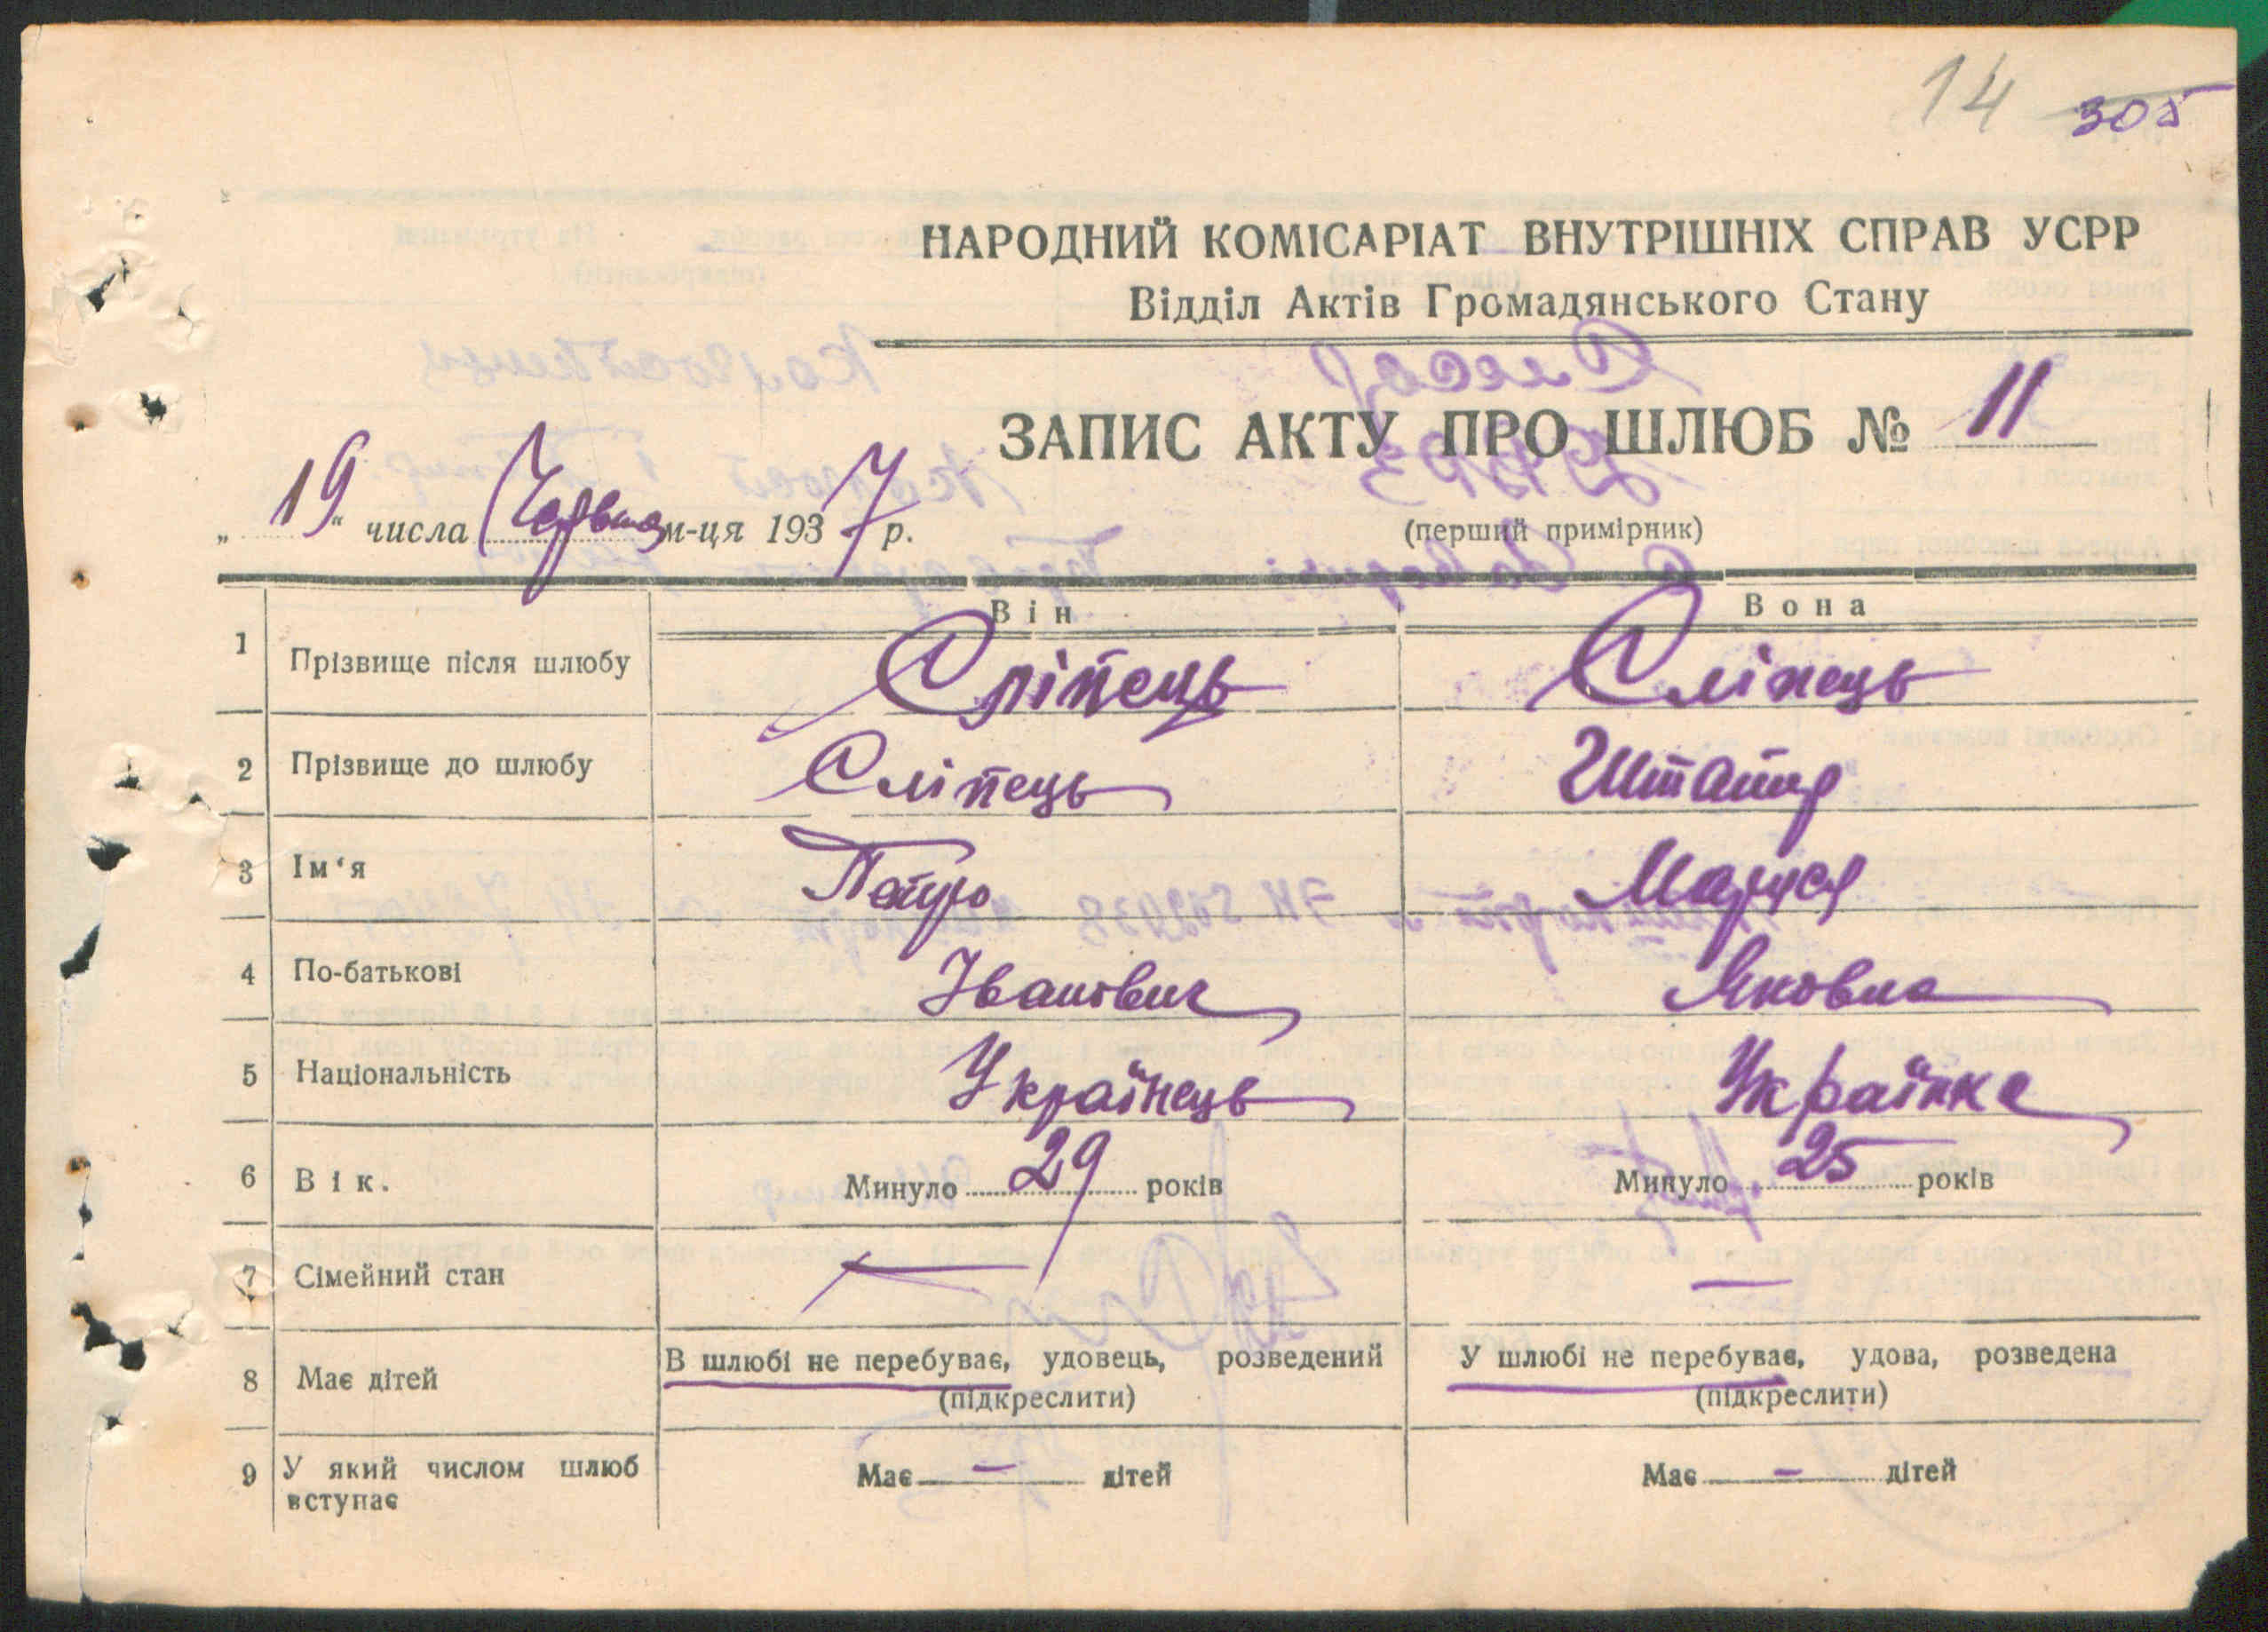 14 305
НАРОДНИЙ КОМІСАРІАТ ВНУТРІШНІХ СПРАВ УСРР
Відділ Актів Громадянського Стану
ЗАПИС АКТУ ПРО ШЛЮБ № 11
„19“ числа Червня м-ця 1937 р.
(перший примірник)
Він Вона
1 Прізвище після шлюбу Сліпець Сліпець
2 Прізвище до шлюбу Сліпець Штапир
3 Ім‘я Петро Маруся
4 По-батькові Іванович Яковна
5 Національність Українець Українка
6 Вік. Минуло 29 років Минуло 25 років
7 Сімейний стан — —
8 Має дітей В шлюбі не перебуває, удовець, розведений У шлюбі не перебуває, удова, розведена
(підкреслити) (підкреслити)
9 У який числом шлюб Має — дітей Має — дітей
вступає